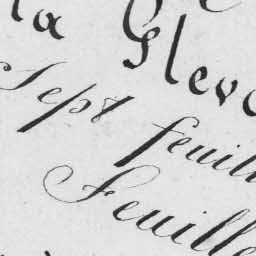 la Gleve
Sept feuill
Feuille